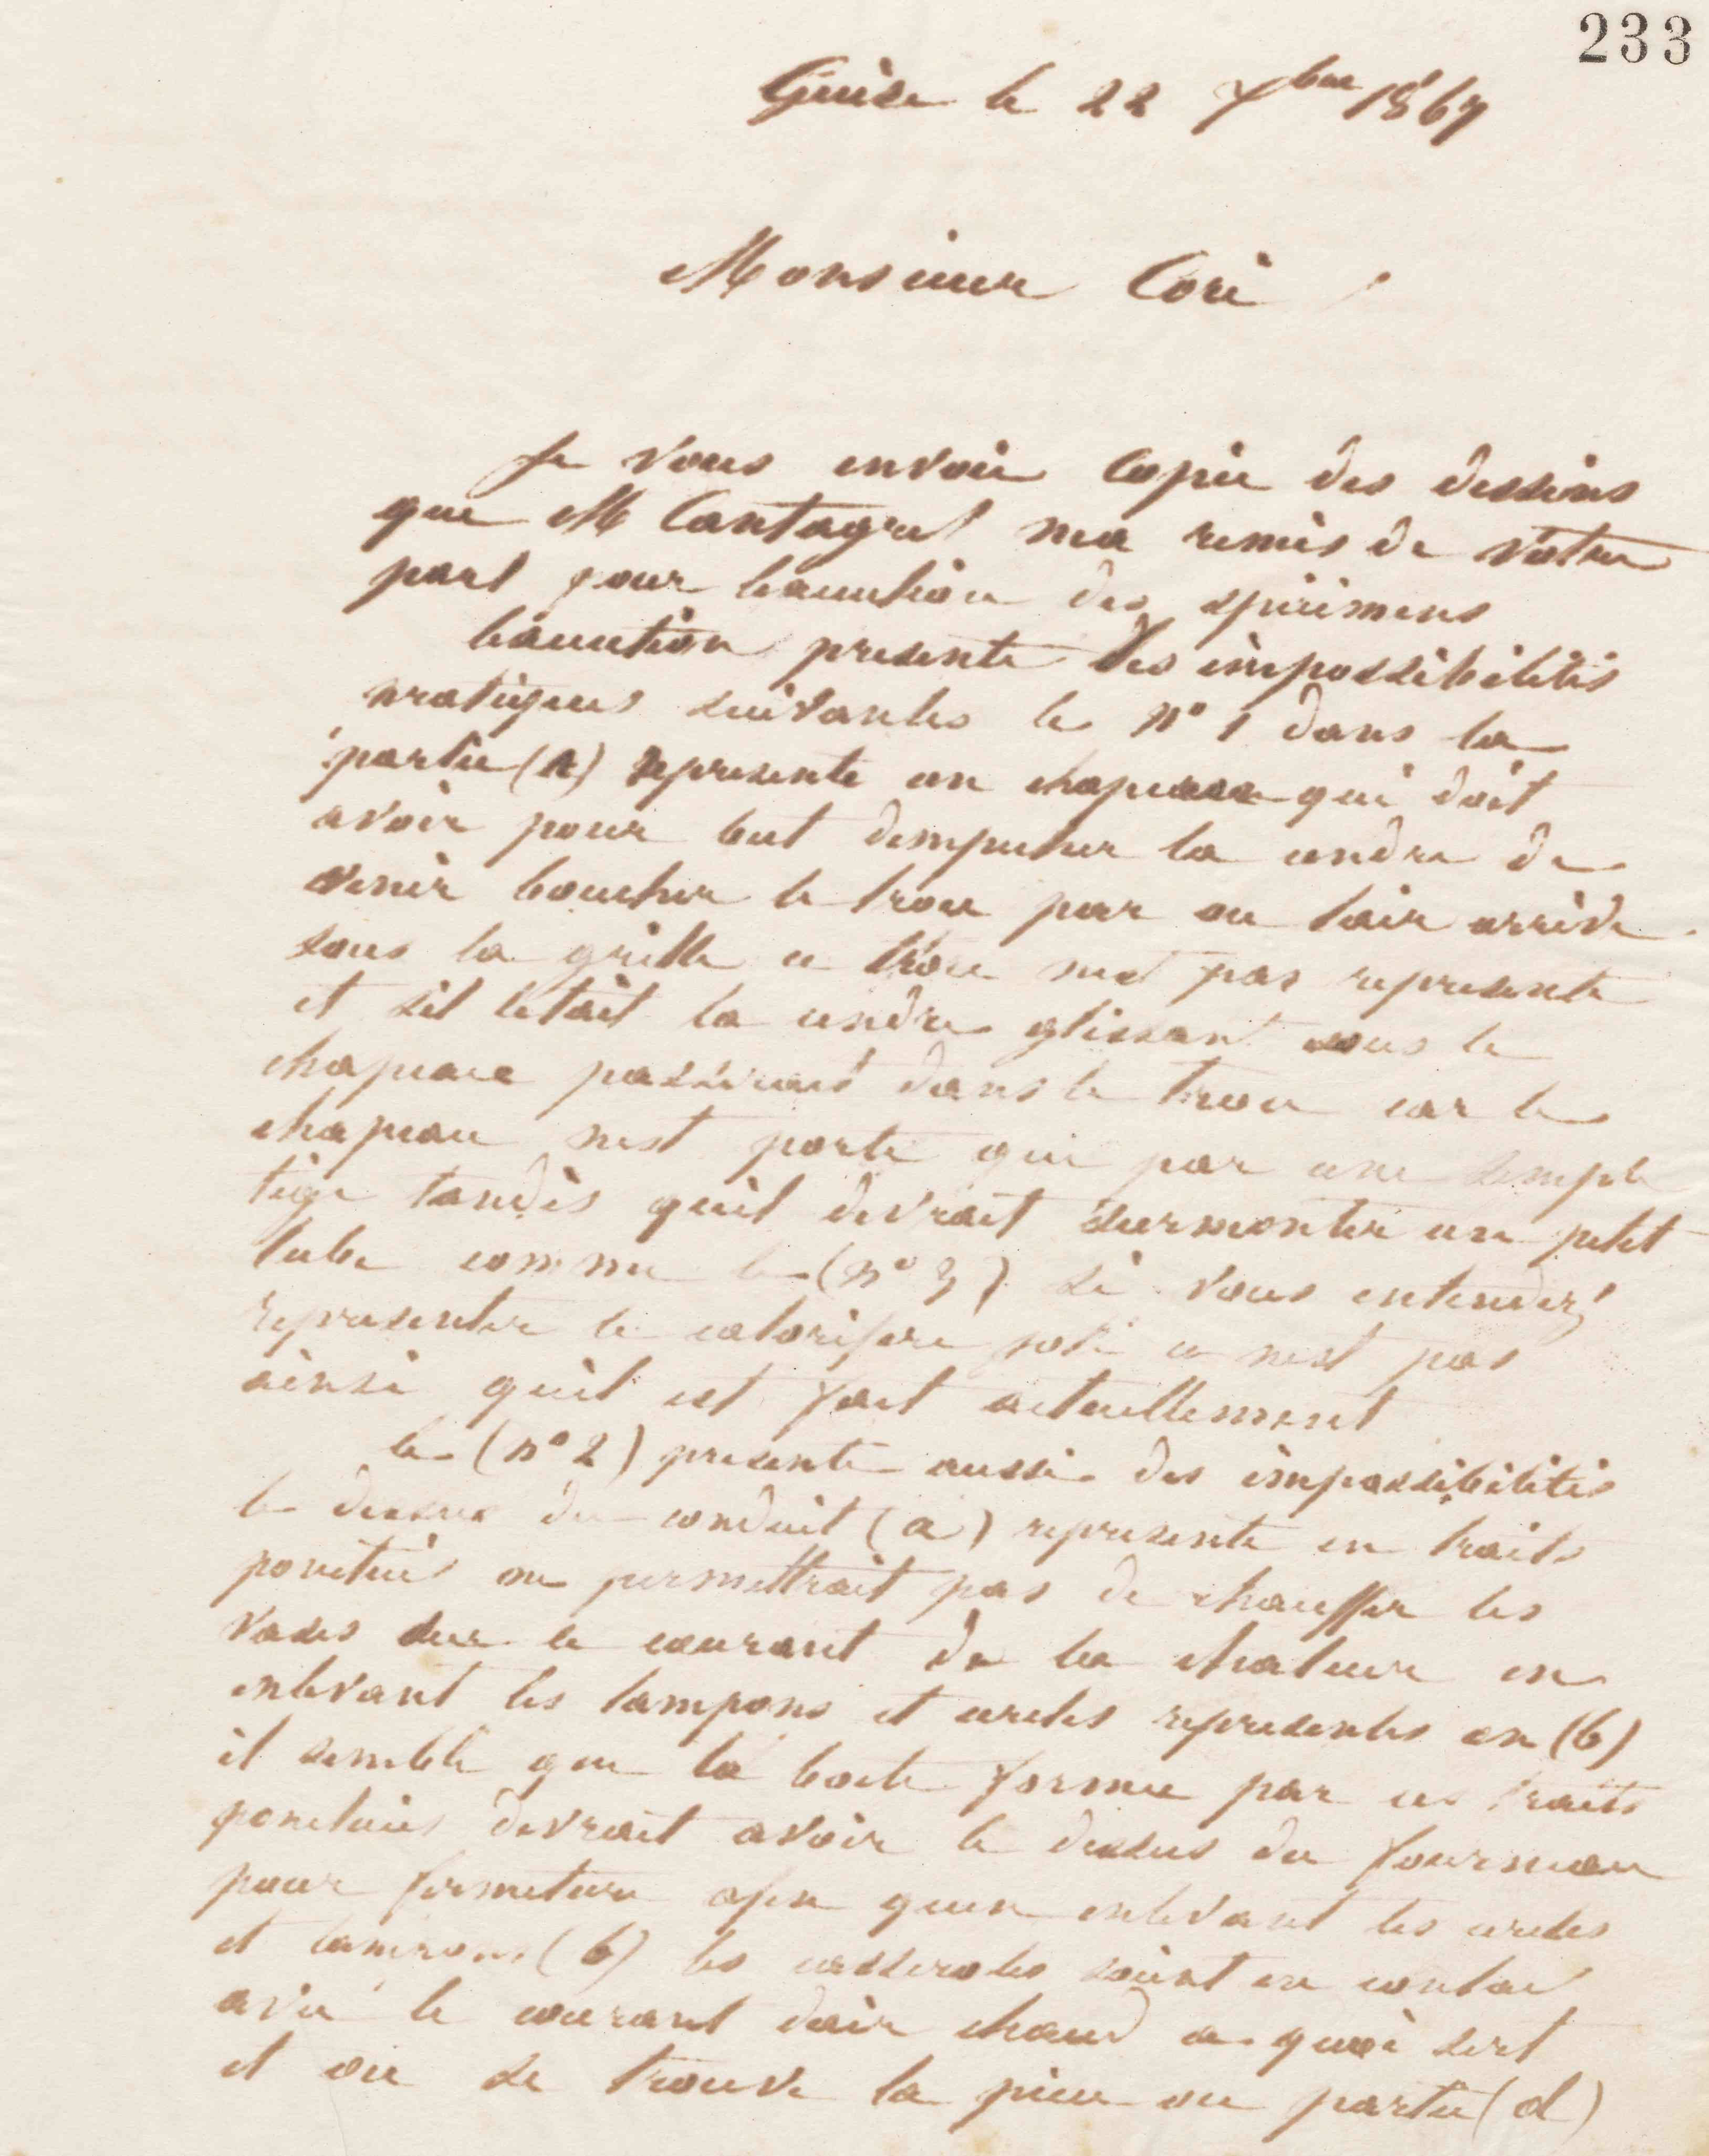 233
Guise le 22 7bre 1867
Monsieur Cori
Je vous envoie copie des dessins
que M Cantagrel ma remis de votre
part pour lexecution des spécimens
lexecution presente les impossibilités
pratiques suivantes le n° 1 dans la
partie (a) represente un chapeau qui doit
avoir pour but dempecher la cendre de
venir boucher le trou par ou lair arrive
sous la grille ce trou nest pas represente
et sil letait la cendre glissant sous le
chapeau passerait dans le trou car le
chapeau nest porte que par une simple
tige tandis quil devrait surmonter un petit
tube comme le (n° 3) si vous entendez
representer le calorifere posé ce nest pas
ainsi quil est fait actuellement
le (n° 2) presente aussi des impossibilités
le dessus du conduit (a) represente en traits
ponctués ne permettrait pas de chauffer les
vases sur le courant de la chaleur en
enlevant les tampons et cercles representes en (b)
il semble que la boite formee par ces traits
ponctués devrait avoir le dessus du fourneau
pour fermeture afin quen enlevant les cercles
et tampons (b) les casseroles soient en contact
avec le courant dair chaud a quoi sert
et ou se trouve la piece ou partie (d)